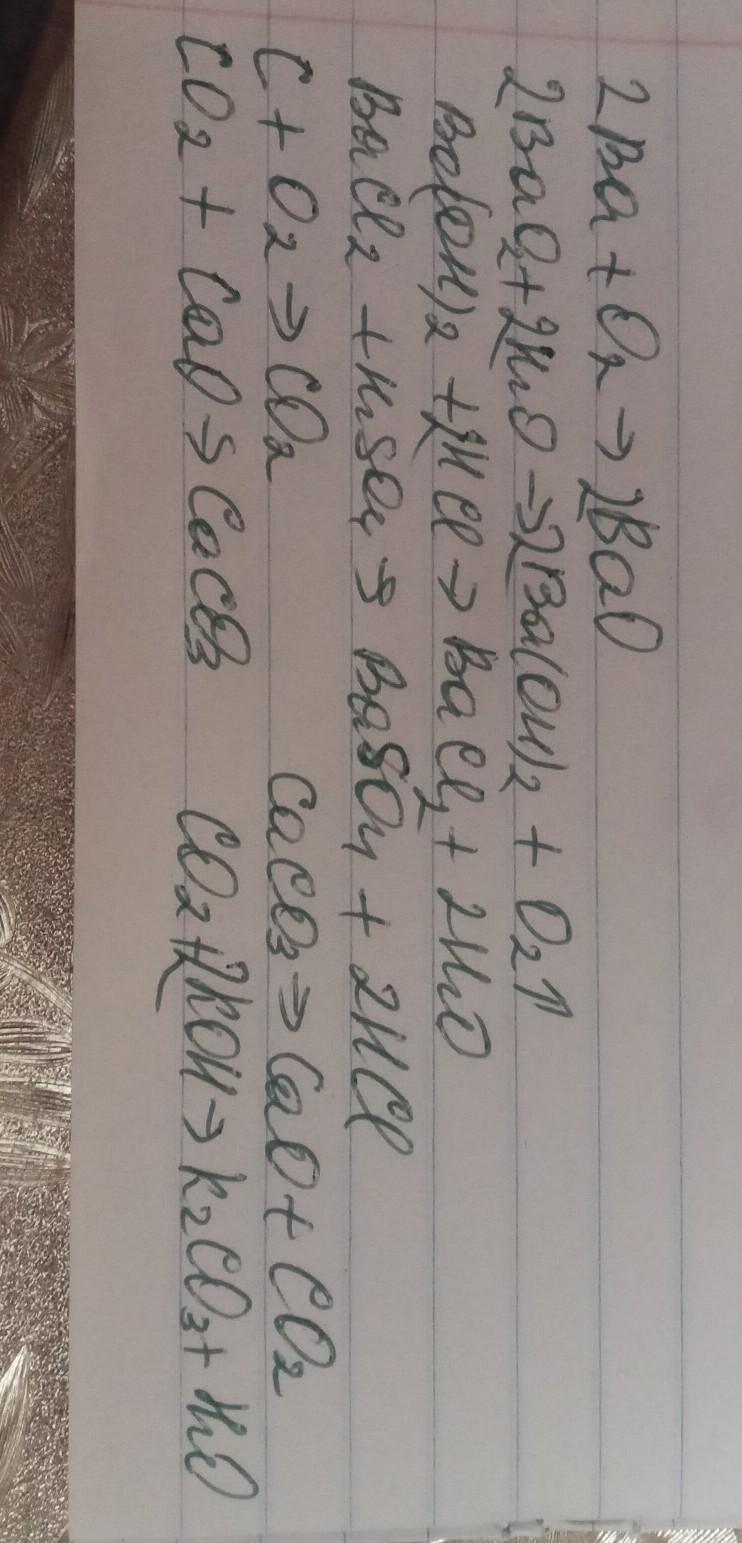 2Ba + O₂ → 2BaO
2BaO₂ + 2H₂O → 2Ba(OH)₂ + O₂↑
Ba(OH)₂ + 2HCl → BaCl₂ + 2H₂O
BaCl₂ + H₂SO₄ → BaSO₄ + 2HCl
C + O₂ → CO₂ CaCO₃ → CaO + CO₂
CO₂ + CaO → CaCO₃ CO₂ + 2KOH → K₂CO₃ + H₂O